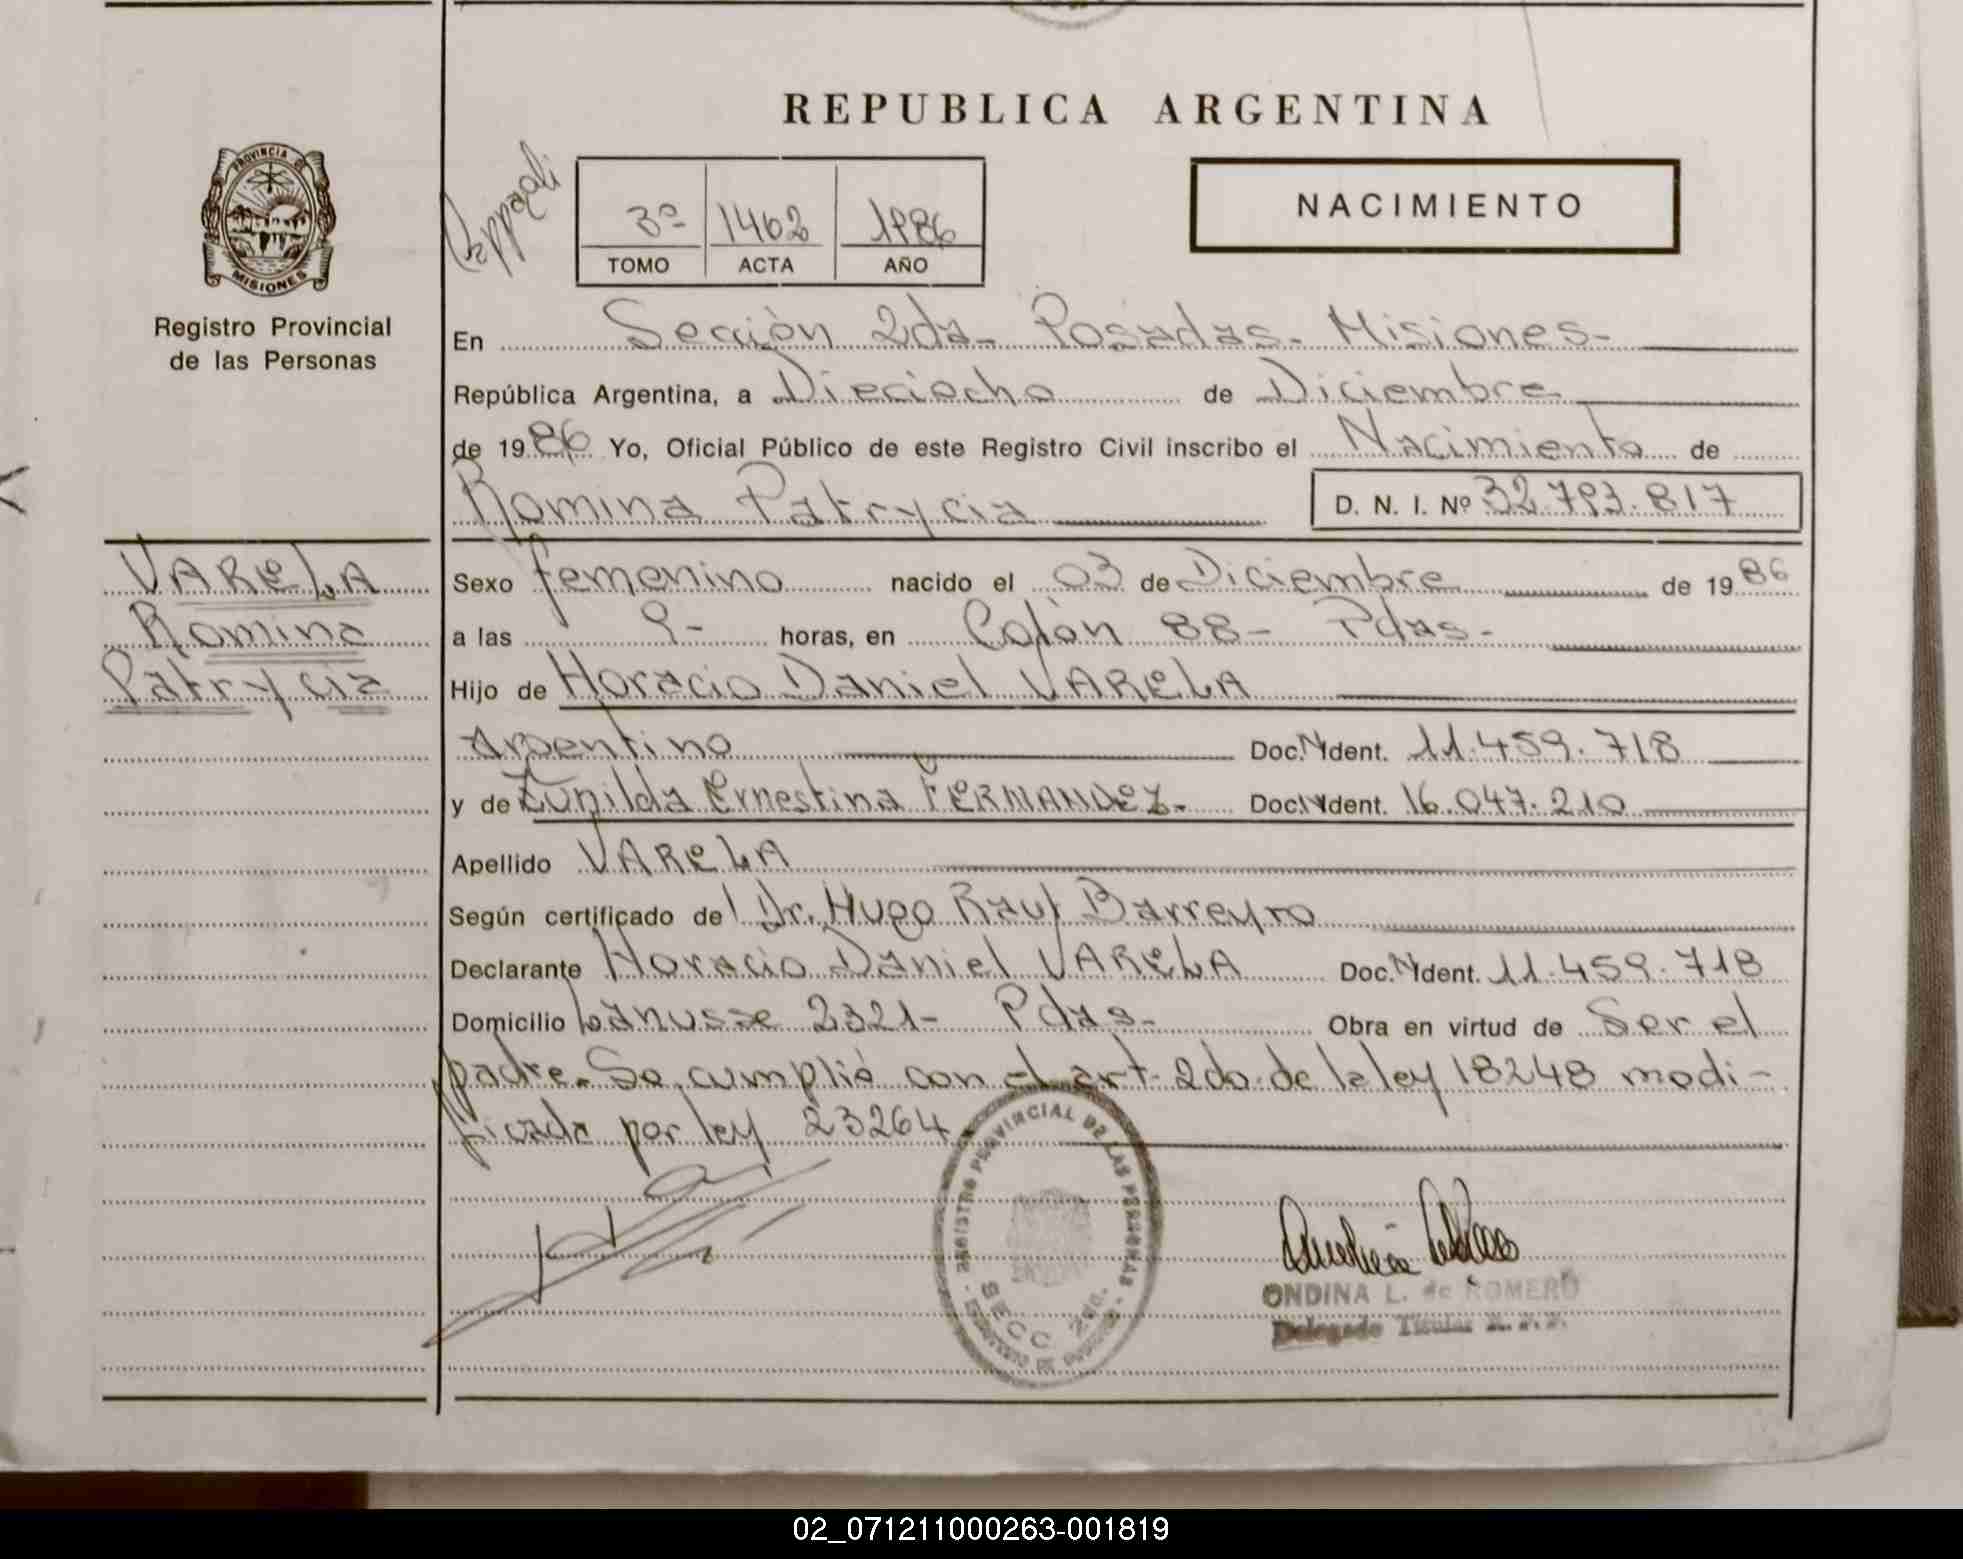 REPUBLICA ARGENTINA
PROVINCIA DE
MISIONES
Registro Provincial
de las Personas
3º 1462 1986
TOMO ACTA AÑO
NACIMIENTO
En Sección 2da- Posadas- Misiones-
República Argentina, a Dieciocho de Diciembre
de 1986 Yo, Oficial Público de este Registro Civil inscribo el Nacimiento de
Romina Patrycia D. N. I. Nº 32.793.817
VARELA
Romina
Patrycia
Sexo femenino nacido el 03 de Diciembre de 1986
a las 9- horas, en Colón 88- Pdas-
Hijo de Horacio Daniel VARELA
Argentino Doc. Ident. 11.459.718
y de Zunilda Ernestina FERNANDEZ- Doc. Ident. 16.047.210
Apellido VARELA
Según certificado del Dr. Hugo Raul Barreyro
Declarante Horacio Daniel VARELA Doc. Ident. 11.459.718
Domicilio Lanusse 2321- Pdas- Obra en virtud de Ser el
padre. Se cumplió con el art. 2do. de la ley 18248 modi-
ficada por ley 23264
REGISTRO PROVINCIAL DE LAS PERSONAS
SECC 2da.
ONDINA L. de ROMERO
Delegado Titular
02_071211000263-001819